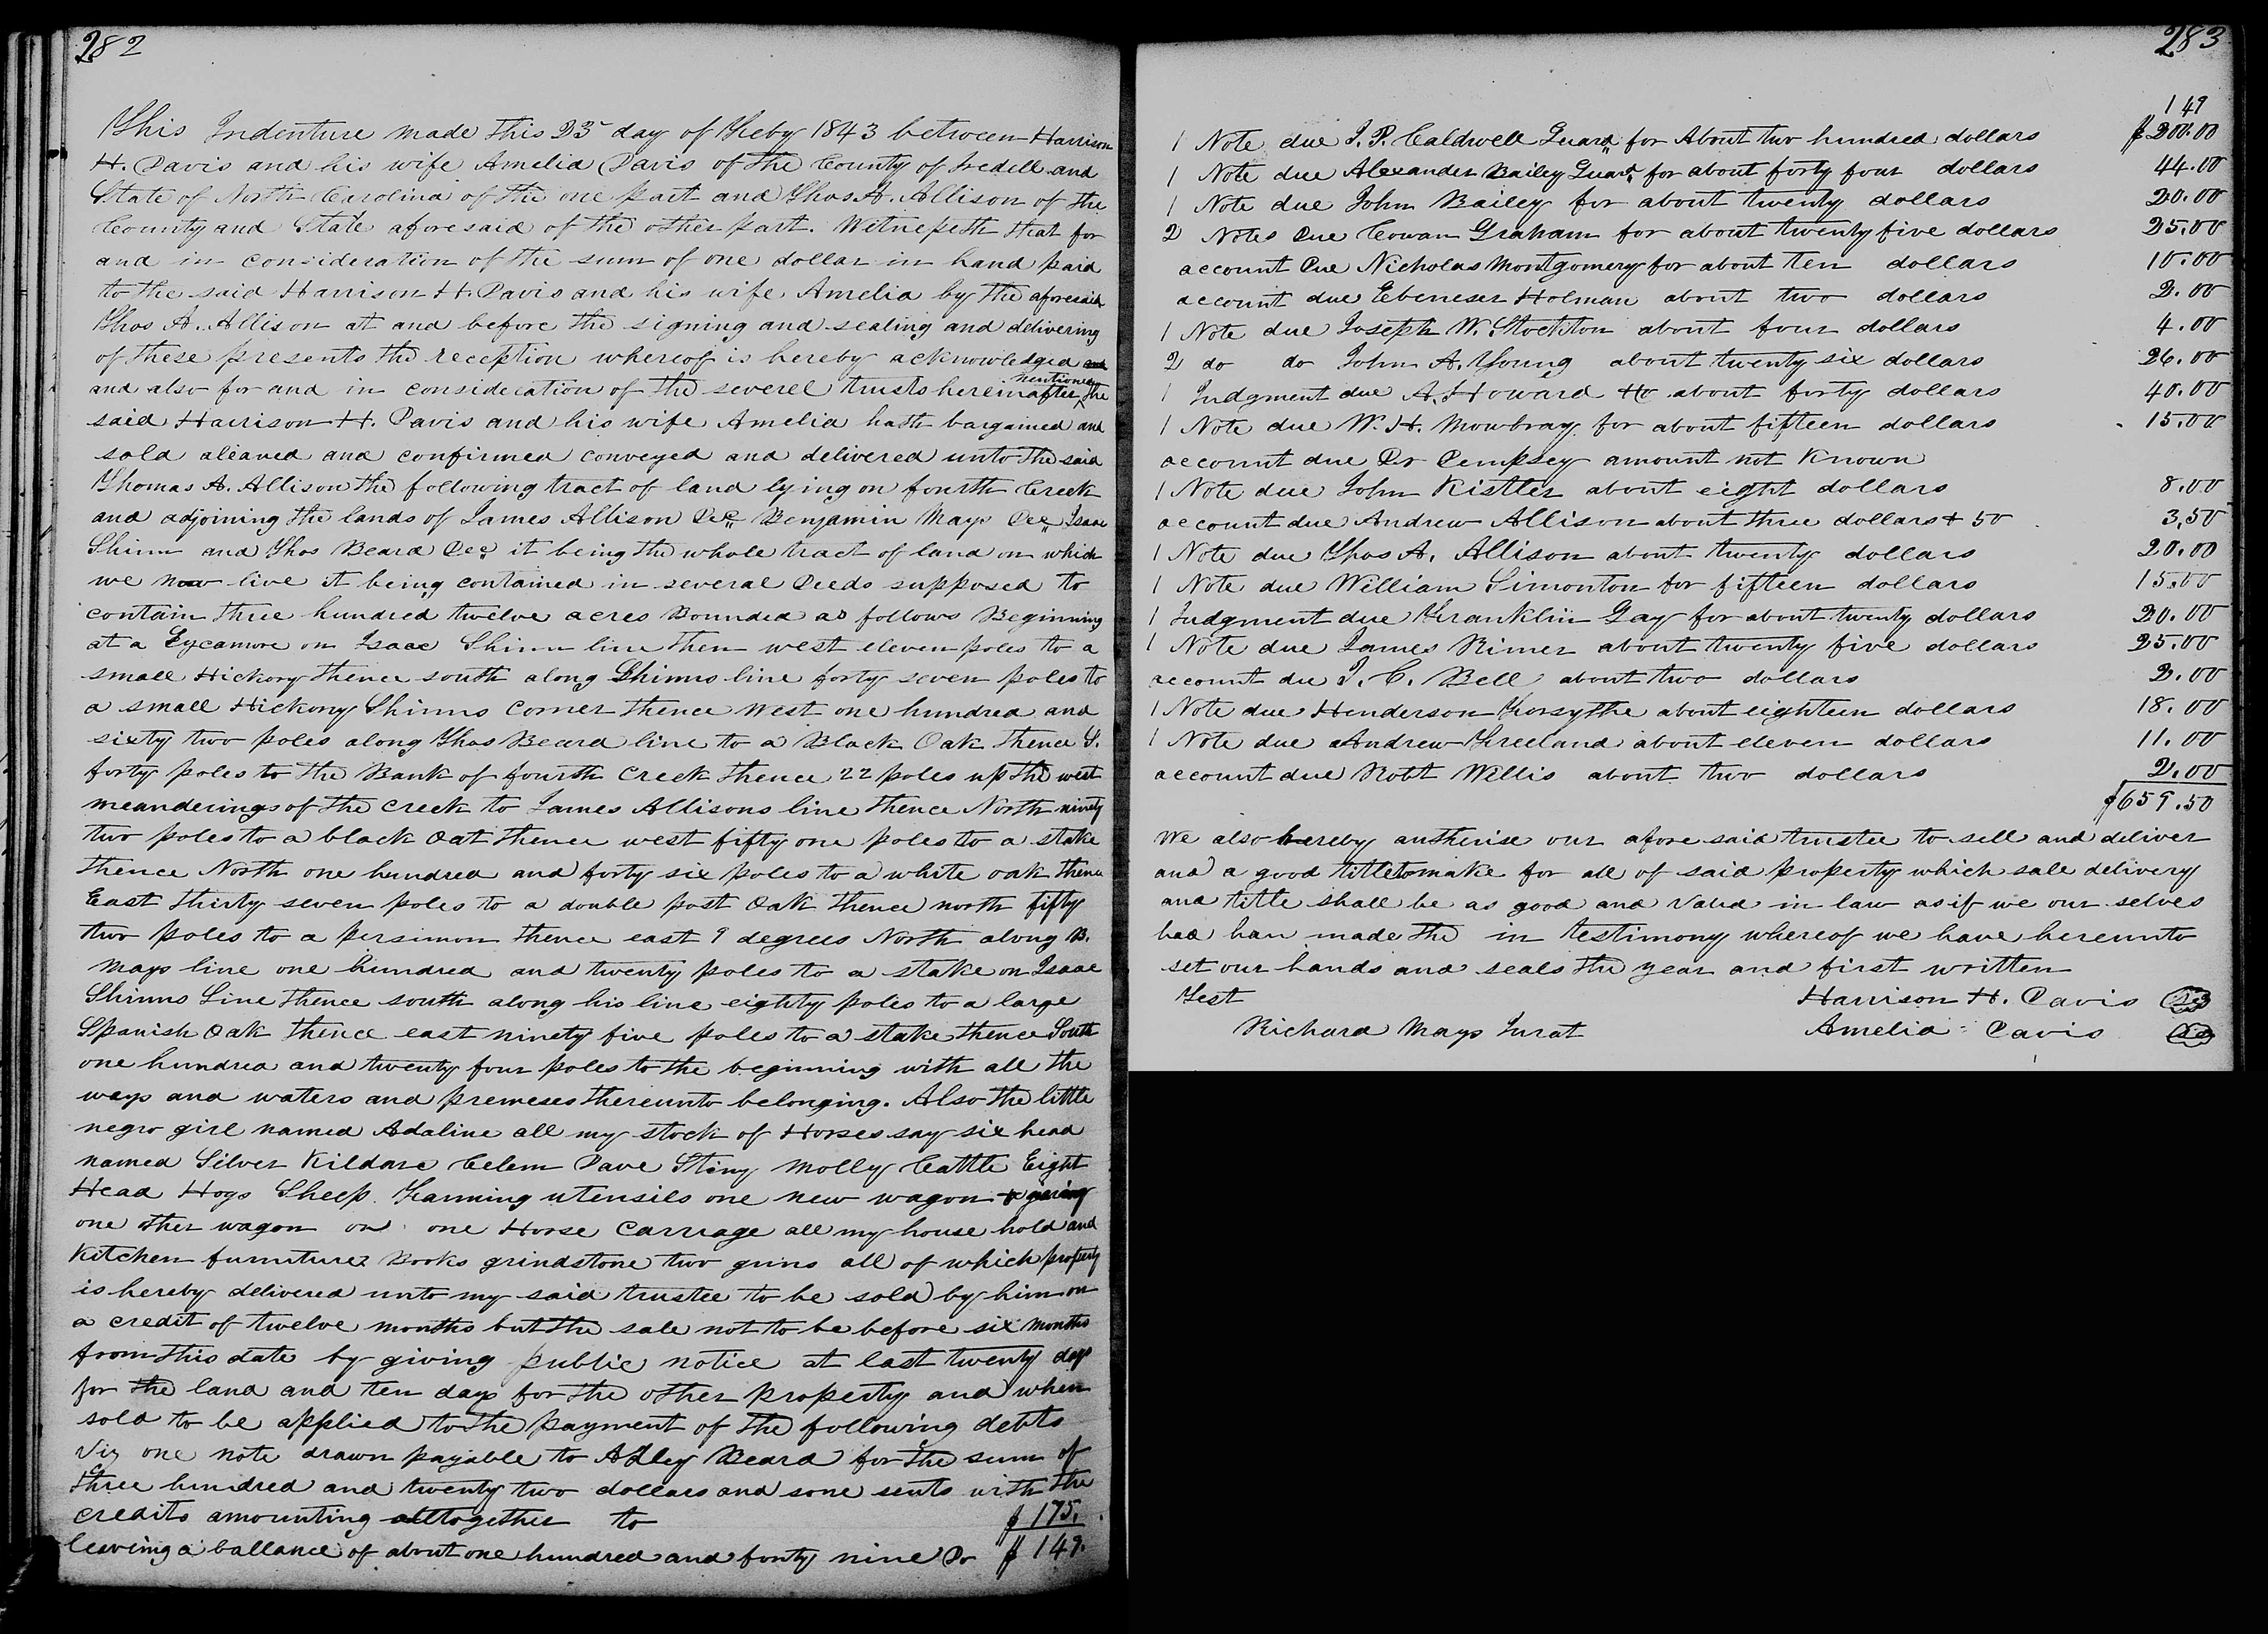 282
This Indenture made this 23 day of Feby 1843 between Harrison
H. Davis and his wife Amelia Davis of the County of Iredell and
State of North Carolina of the one part and Thos A. Allison of the
County and State aforesaid of the other part. Witnesseth that for
and in consideration of the sum of one dollar in hand paid
to the said Harrison H. Davis and his wife Amelia by the aforesaid
Thos A. Allison at and before the signing and sealing and delivering
of these presents the reception whereof is hereby acknowledged and
and also for and in consideration of the severel trusts hereinafter mentioned the
said Harrison H. Davis and his wife Amelia hath bargained and
sold aliened and confirmed conveyed and delivered unto the said
Thomas A. Allison the following tract of land lying on fourth Creek
and adjoining the lands of James Allison Decd Benjamin Mays Dec Isaac
Shinn and Thos Beard Decd it being the whole tract of land on which
we now live it being contained in several Deeds supposed to
contain three hundred twelve acres Bounded as follows Beginning
at a Sycamore on Isaac Shinn line then west eleven poles to a
small Hickory thence south along Shinns line forty seven poles to
a small Hickory Shinns Corner thence West one hundred and
sixty two poles along Thos Beard line to a Black Oak thence S.
forty poles to the Bank of fourth Creek thence 22 poles up the west
meanderings of the creek to James Allisons line thence North ninety
two poles to a black Oat thence west fifty one poles to a stake
thence North one hundred and forty six poles to a white oak thence
East thirty seven poles to a double post Oak thence north fifty
two poles to a persimon thence east 9 degrees North along B.
Mays line one hundred and twenty poles to a stake on Isaac
Shinns Line thence south along his line eighty poles to a large
Spanish Oak thence east ninety five poles to a stake thence South
one hundred and twenty four poles to the beginning with all the
ways and waters and premeses thereunto belonging. Also the little
negro girl named Adaline all my stock of Horses say six head
named Silver Kildare Celem Dave Sting Molly Cattle Eight
Head Hogs Sheep Farming utensils one new wagon & gearing
one other wagon on one Horse Carriage all my house hold and
Kitchen furniture Books grindstone two guns all of which property
is hereby delivered unto my said trustee to be sold by him on
a credit of twelve months but the sale not to be before six months
from this date by giving public notice at last twenty days
for the land and ten days for the other property and when
sold to be applied to the payment of the following debts
Viz one note drawn payable to Adley Beard for the sum of
three hundred and twenty two dollars and some sents with the
credits amounting alltogether to $175.
leaving a ballance of about one hundred and forty nine Do $149.
283
149
1 Note due J. P. Caldwell Guard for About two hundred dollars $200.00
1 Note due Alexander Bailey Guard for about forty four dollars 44.00
1 Note due John Bailey for about twenty dollars 20.00
2 Notes Due Cowan Graham for about twenty five dollars 25.00
account Due Nicholas Montgomery for about ten dollars 10.00
account due Ebeneser Holman about two dollars 2.00
1 Note due Joseph W. Stockton about four dollars 4.00
2 do do John A. Young about twenty six dollars 26.00
1 Judgment due A. Howard Ho about forty dollars 40.00
1 Note due W. H. Mowbray for about fifteen dollars 15.00
account due Dr Dempsey amount not Known
1 Note due John Kistler about eight dollars 8.00
account due Andrew Allison about three dollars & 50 3.50
1 Note due Thos A. Allison about twenty dollars 20.00
1 Note due William Simonton for fifteen dollars 15.00
1 Judgment due Franklin Gay for about twenty dollars 20.00
1 Note due James Rimer about twenty five dollars 25.00
account due J. C. Bell about two dollars 2.00
1 Note due Henderson Forsythe about eighteen dollars 18.00
1 Note due Andrew Freeland about eleven dollars 11.00
account due Robt Willis about two dollars 2.00
$659.50
We also hereby autherise our afore said trustee to sell and deliver
and a good title to make for all of said property which sale delivery
and title shall be as good and Valid in law as if we our selves
had han made the in testimony whereof we have hereunto
set our hands and seals the year and first written
Test Harrison H. Davis
Richard Mays Jurat Amelia Davis